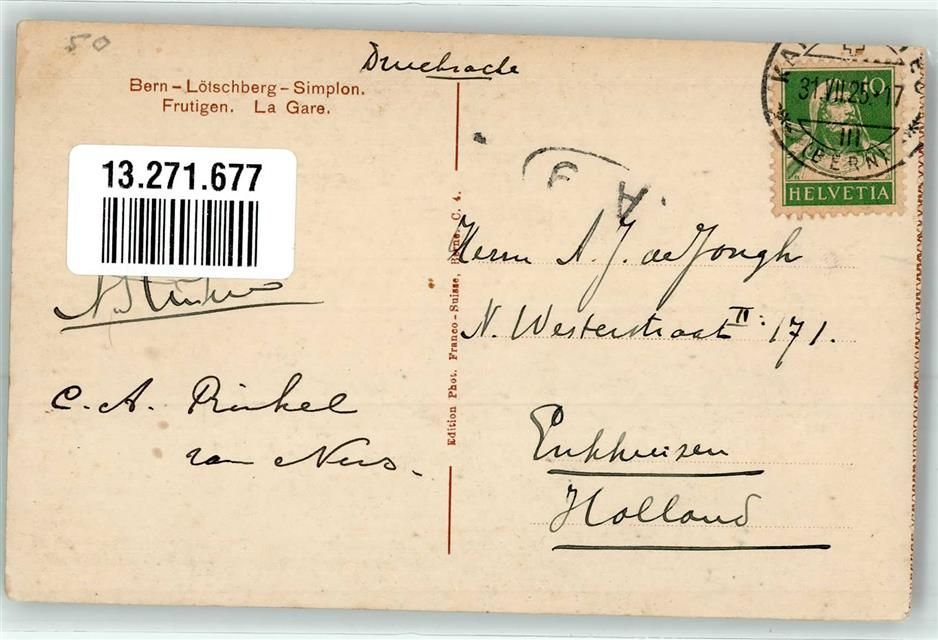 50
Drucksache
Bern-Lötschberg-Simplon.
Frutigen. La Gare.
13.271.677
C. A. Rinkel
van Nus.
Edition Phot. Franco-Suisse, Berne. C. 4.
KA
31.VII.25.-17
III
(BERN)
10
HELVETIA
A
Herrn A. J. de Jongh
N. Westerstraat II: 171.
Enkhuisen
Holland